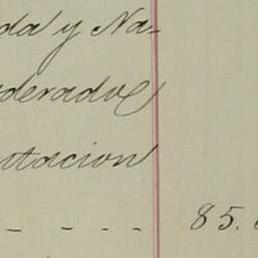 da y Na-
derados
ntacion
- - - - 85.